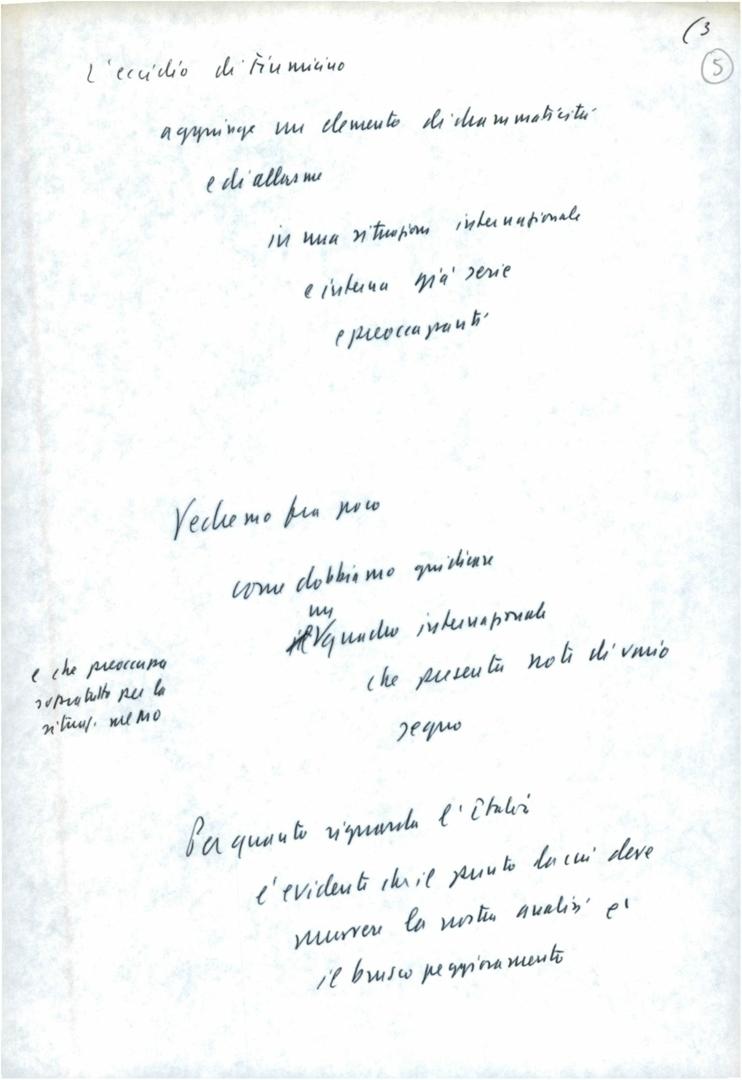 (3
5
L'eccidio di Fiumicino
aggiunge un elemento di drammaticità
e di allarme
in una situazione internazionale
e interna già serie
e preoccupanti
Vedremo fra poco
come dobbiamo giudicare
un
il quadro internazionale
che presenta note di vario
segno
e che preoccupa
sopratutto per la
situaz. MEMO
Per quanto riguarda l'Italia
è evidente che il punto da cui deve
muovere la nostra analisi è
il brusco peggioramento